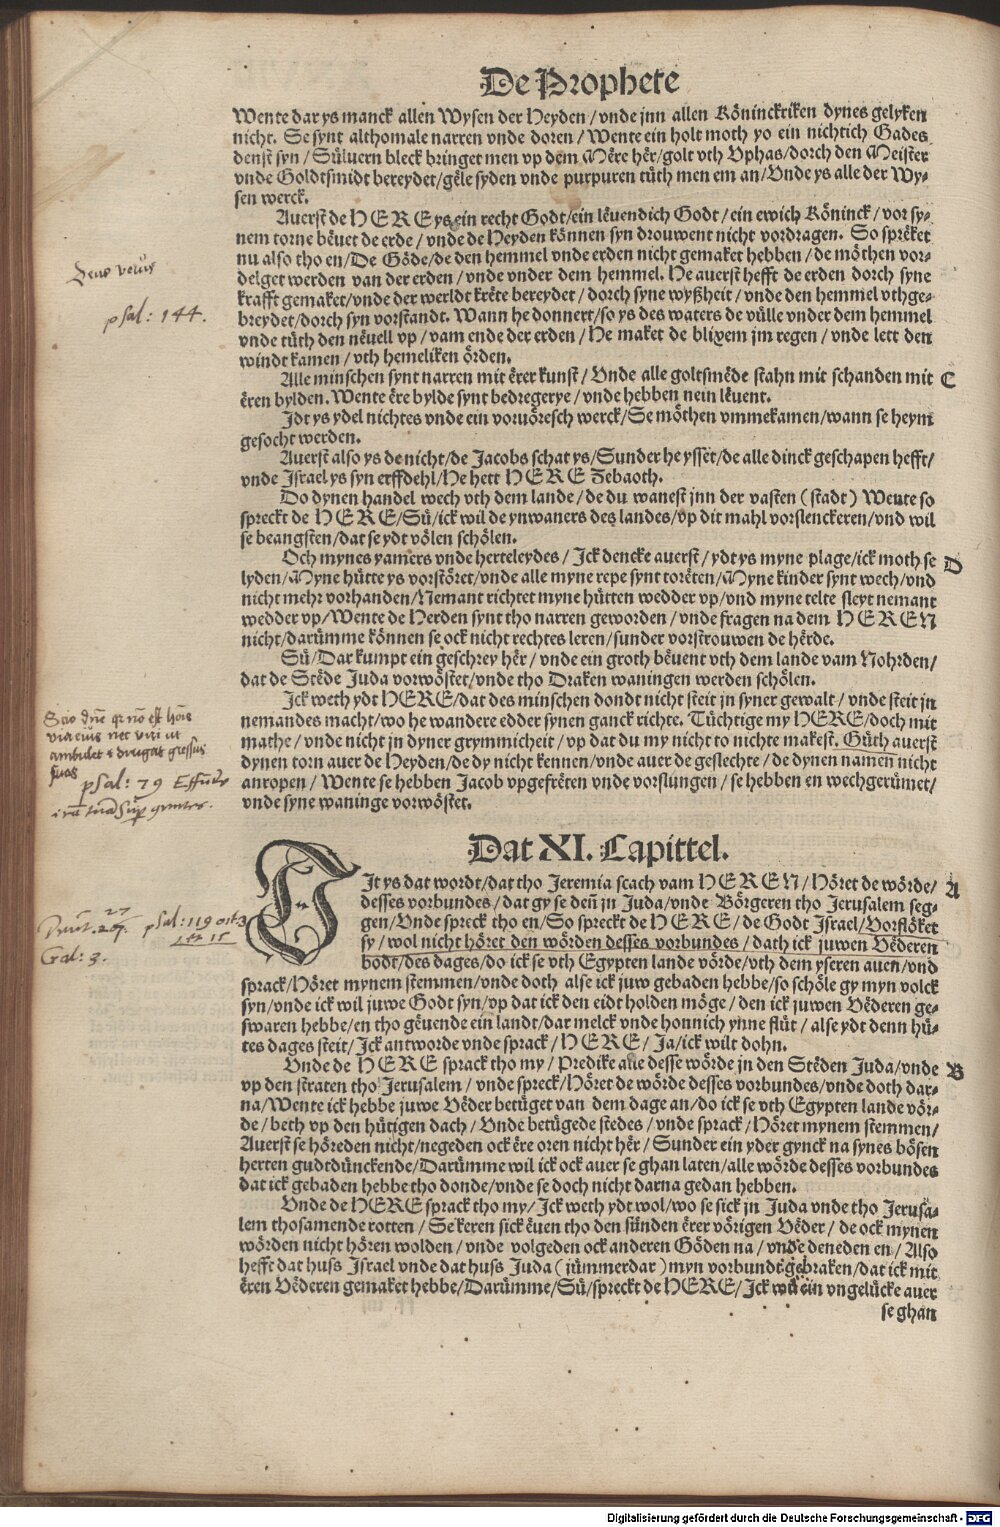 De Prophete
Wente dar ys manck allen Wysen der Heyden / vnde jnn allen Köninckriken dynes gelyken
nicht. Se synt althomale narren vnde doren / Wente ein holt moth yo ein nichtich Gades
denst syn / Süluern bleck bringet men vp dem Mêre hêr / golt vth Vphas / dorch den Meister
vnde Goldtsmidt bereydet / gêle syden vnde purpuren tüth men em an / Vnde ys alle der Wy-
sen werck.
Auerst de HERE ys ein recht Godt / ein lêuendich Godt / ein ewich Köninck / vor sy-
nem torne bêuet de erde / vnde de Heyden können syn drouwent nicht vordragen. So sprêket
nu also tho en / De Göde / de den hemmel vnde erden nicht gemaket hebben / de möthen vor-
delget werden van der erden / vnde vnder dem hemmel. He auerst hefft de erden dorch syne
krafft gemaket / vnde der werldt krête bereydet / dorch syne wyßheit / vnde den hemmel vthge-
breydet / dorch syn vorstandt. Wann he donnert / so ys des waters de vülle vnder dem hemmel
vnde tüth den nêuell vp / vam ende der erden / He maket de blixem jm regen / vnde lett den
windt kamen / vth hemeliken örden.
Alle minschen synt narren mit êrer kunst / Vnde alle goltsmêde stahn mit schanden mit C
êren bylden. Wente êre bylde synt bedregerye / vnde hebben nein lêuent.
Jdt ys ydel nichtes vnde ein voruöresch werck / Se möthen vmmekamen / wann se heym
gesocht werden.
Auerst also ys de nicht / de Jacobs schat ys / Sunder he yssêt / de alle dinck geschapen hefft /
vnde Israel ys syn erffdehl / He hett HERE Zebaoth.
Do dynen handel wech vth dem lande / de du wanest jnn der vasten (stadt) Wente so
spreckt de HERE / Sü / ick wil de ynwaners des landes / vp dit mahl vorslenckeren / vnd wil
se beangsten / dat se ydt völen schölen.
Och mynes yamers vnde herteleydes / Jck dencke auerst / ydt ys myne plage / ick moth se D
lyden / Myne hütte ys vorstöret / vnde alle myne repe synt torêten / Myne kinder synt wech / vnd
nicht mehr vorhanden / Nemant richtet myne hütten wedder vp / vnd myne telte sleyt nemant
wedder vp / Wente de Herden synt tho narren geworden / vnde fragen na dem HEREN
nicht / darümme können se ock nicht rechtes leren / sunder vorstrouwen de hêrde.
Sü / Dar kumpt ein geschrey hêr / vnde ein groth bêuent vth dem lande vam Nohrden /
dat de Stêde Juda vorwöstet / vnde tho Draken waningen werden schölen.
Jck weth ydt HERE / dat des minschen dondt nicht steit in syner gewalt / vnde steit jn
nemandes macht / wo he wandere edder synen ganck richte. Tüchtige my HERE / doch mit
mathe / vnde nicht jn dyner grymmicheit / vp dat du my nicht to nichte makest. Güth auerst
dynen torn auer de Heyden / de dy nicht kennen / vnde auer de geslechte / de dynen namen nicht
anropen / Wente se hebben Jacob vpgefrêten vnde vorslungen / se hebben en wechgerümet /
vnde syne waninge vorwöstet.
psal: 144.
Scio dne
psal: 79
Dat XI. Capittel.
DJt ys dat wordt / dat tho Jeremia scach vam HEREN / Höret de wörde / A
desses vorbundes / dat gy se den jn Juda / vnde Börgeren tho Jerusalem seg-
gen / Vnde spreck tho en / So spreckt de HERE / de Godt Israel / Vorflöket
sy / wol nicht höret den wörden desses vorbundes / dath ick juwen Vêderen
bodt / des dages / do ick se vth Egypten lande vörde / vth dem yseren auen / vnd
sprack / Höret mynem stemmen / vnde doth alse ick juw gebaden hebbe / so schöle gy myn volck
syn / vnde ick wil juwe Godt syn / vp dat ick den eidt holden möge / den ick juwen Vêderen ge-
swaren hebbe / en tho gêuende ein landt / dar melck vnde honnich ynne flüt / alse ydt denn hü-
tes dages steit / Jck antworde vnde sprack / HERE / Ja / ick wilt dohn.
psal: 119
Gal: 3.
Vnde de HERE sprack tho my / Predike alle desse wörde jn den Stêden Juda / vnde B
vp den straten tho Jerusalem / vnde spreck / Höret de wörde desses vorbundes / vnde doth dar-
na / Wente ick hebbe juwe Vêder betüget van dem dage an / do ick se vth Egypten lande vör-
de / beth vp den hütigen dach / Vnde betügede stedes / vnde sprack / Höret mynem stemmen /
Auerst se höreden nicht / negeden ock êre oren nicht hêr / Sunder ein yder gynck na synes bösen
herten gudtdünckende / Darümme wil ick ock auer se ghan laten / alle wörde desses vorbundes
dat ick gebaden hebbe tho donde / vnde se doch nicht darna gedan hebben.
Vnde de HERE sprack tho my / Jck weth ydt wol / wo se sick jn Juda vnde tho Jerusa-
lem thosamende rotten / Se keren sick êuen tho den sünden êrer vörigen Vêder / de ock mynen
wörden nicht hören wolden / vnde volgeden ock anderen Göden na / vnde deneden en / Also
hefft dat huss Israel vnde dat huss Juda (jümmerdar) myn vorbundt gebraken / dat ick mit
êren Vêderen gemaket hebbe / Darümme / Sü / spreckt de HERE / Jck wil ein vngelücke auer
se ghan
Digitalisierung gefördert durch die Deutsche Forschungsgemeinschaft - DFG